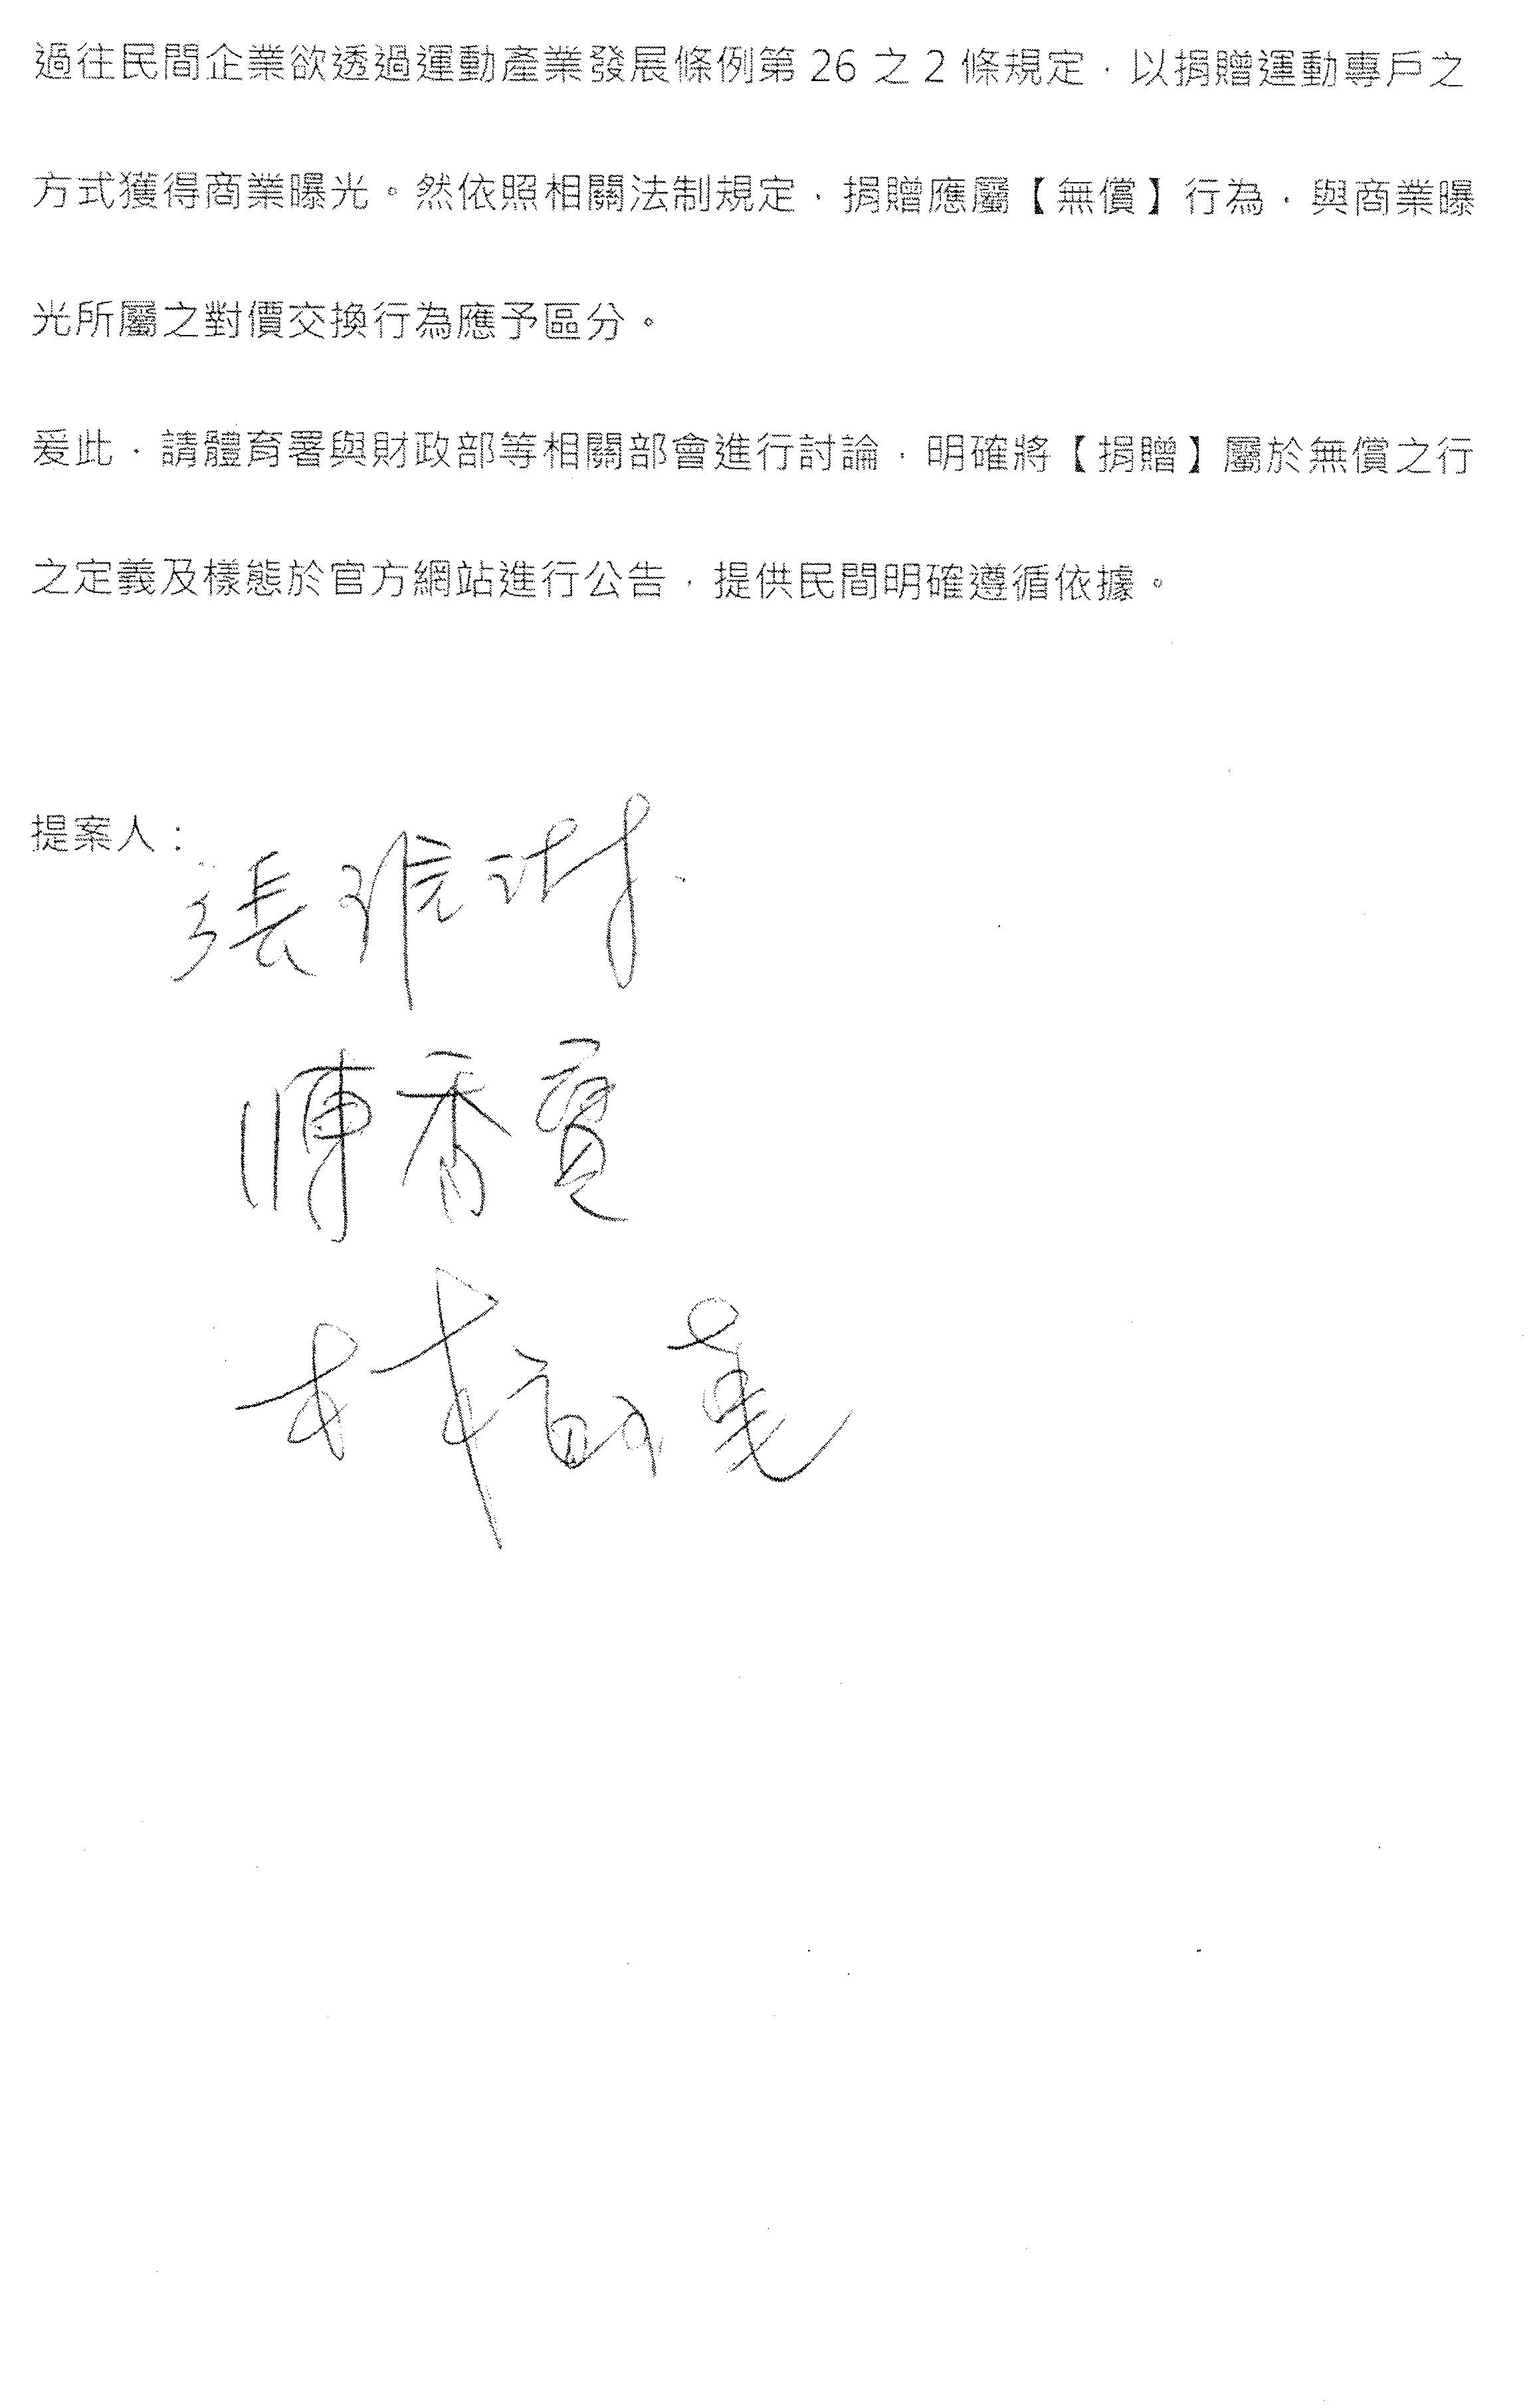 過往民間企業欲透過運動產業發展條例第 26 之 2 條規定，以捐贈運動專戶之
方式獲得商業曝光。然依照相關法制規定，捐贈應屬【無償】行為，與商業曝
光所屬之對價交換行為應予區分。
爰此，請體育署與財政部等相關部會進行討論，明確將【捐贈】屬於無償之行
之定義及樣態於官方網站進行公告，提供民間明確遵循依據。
提案人：
張雅琳
陳秀寳
林宜瑾